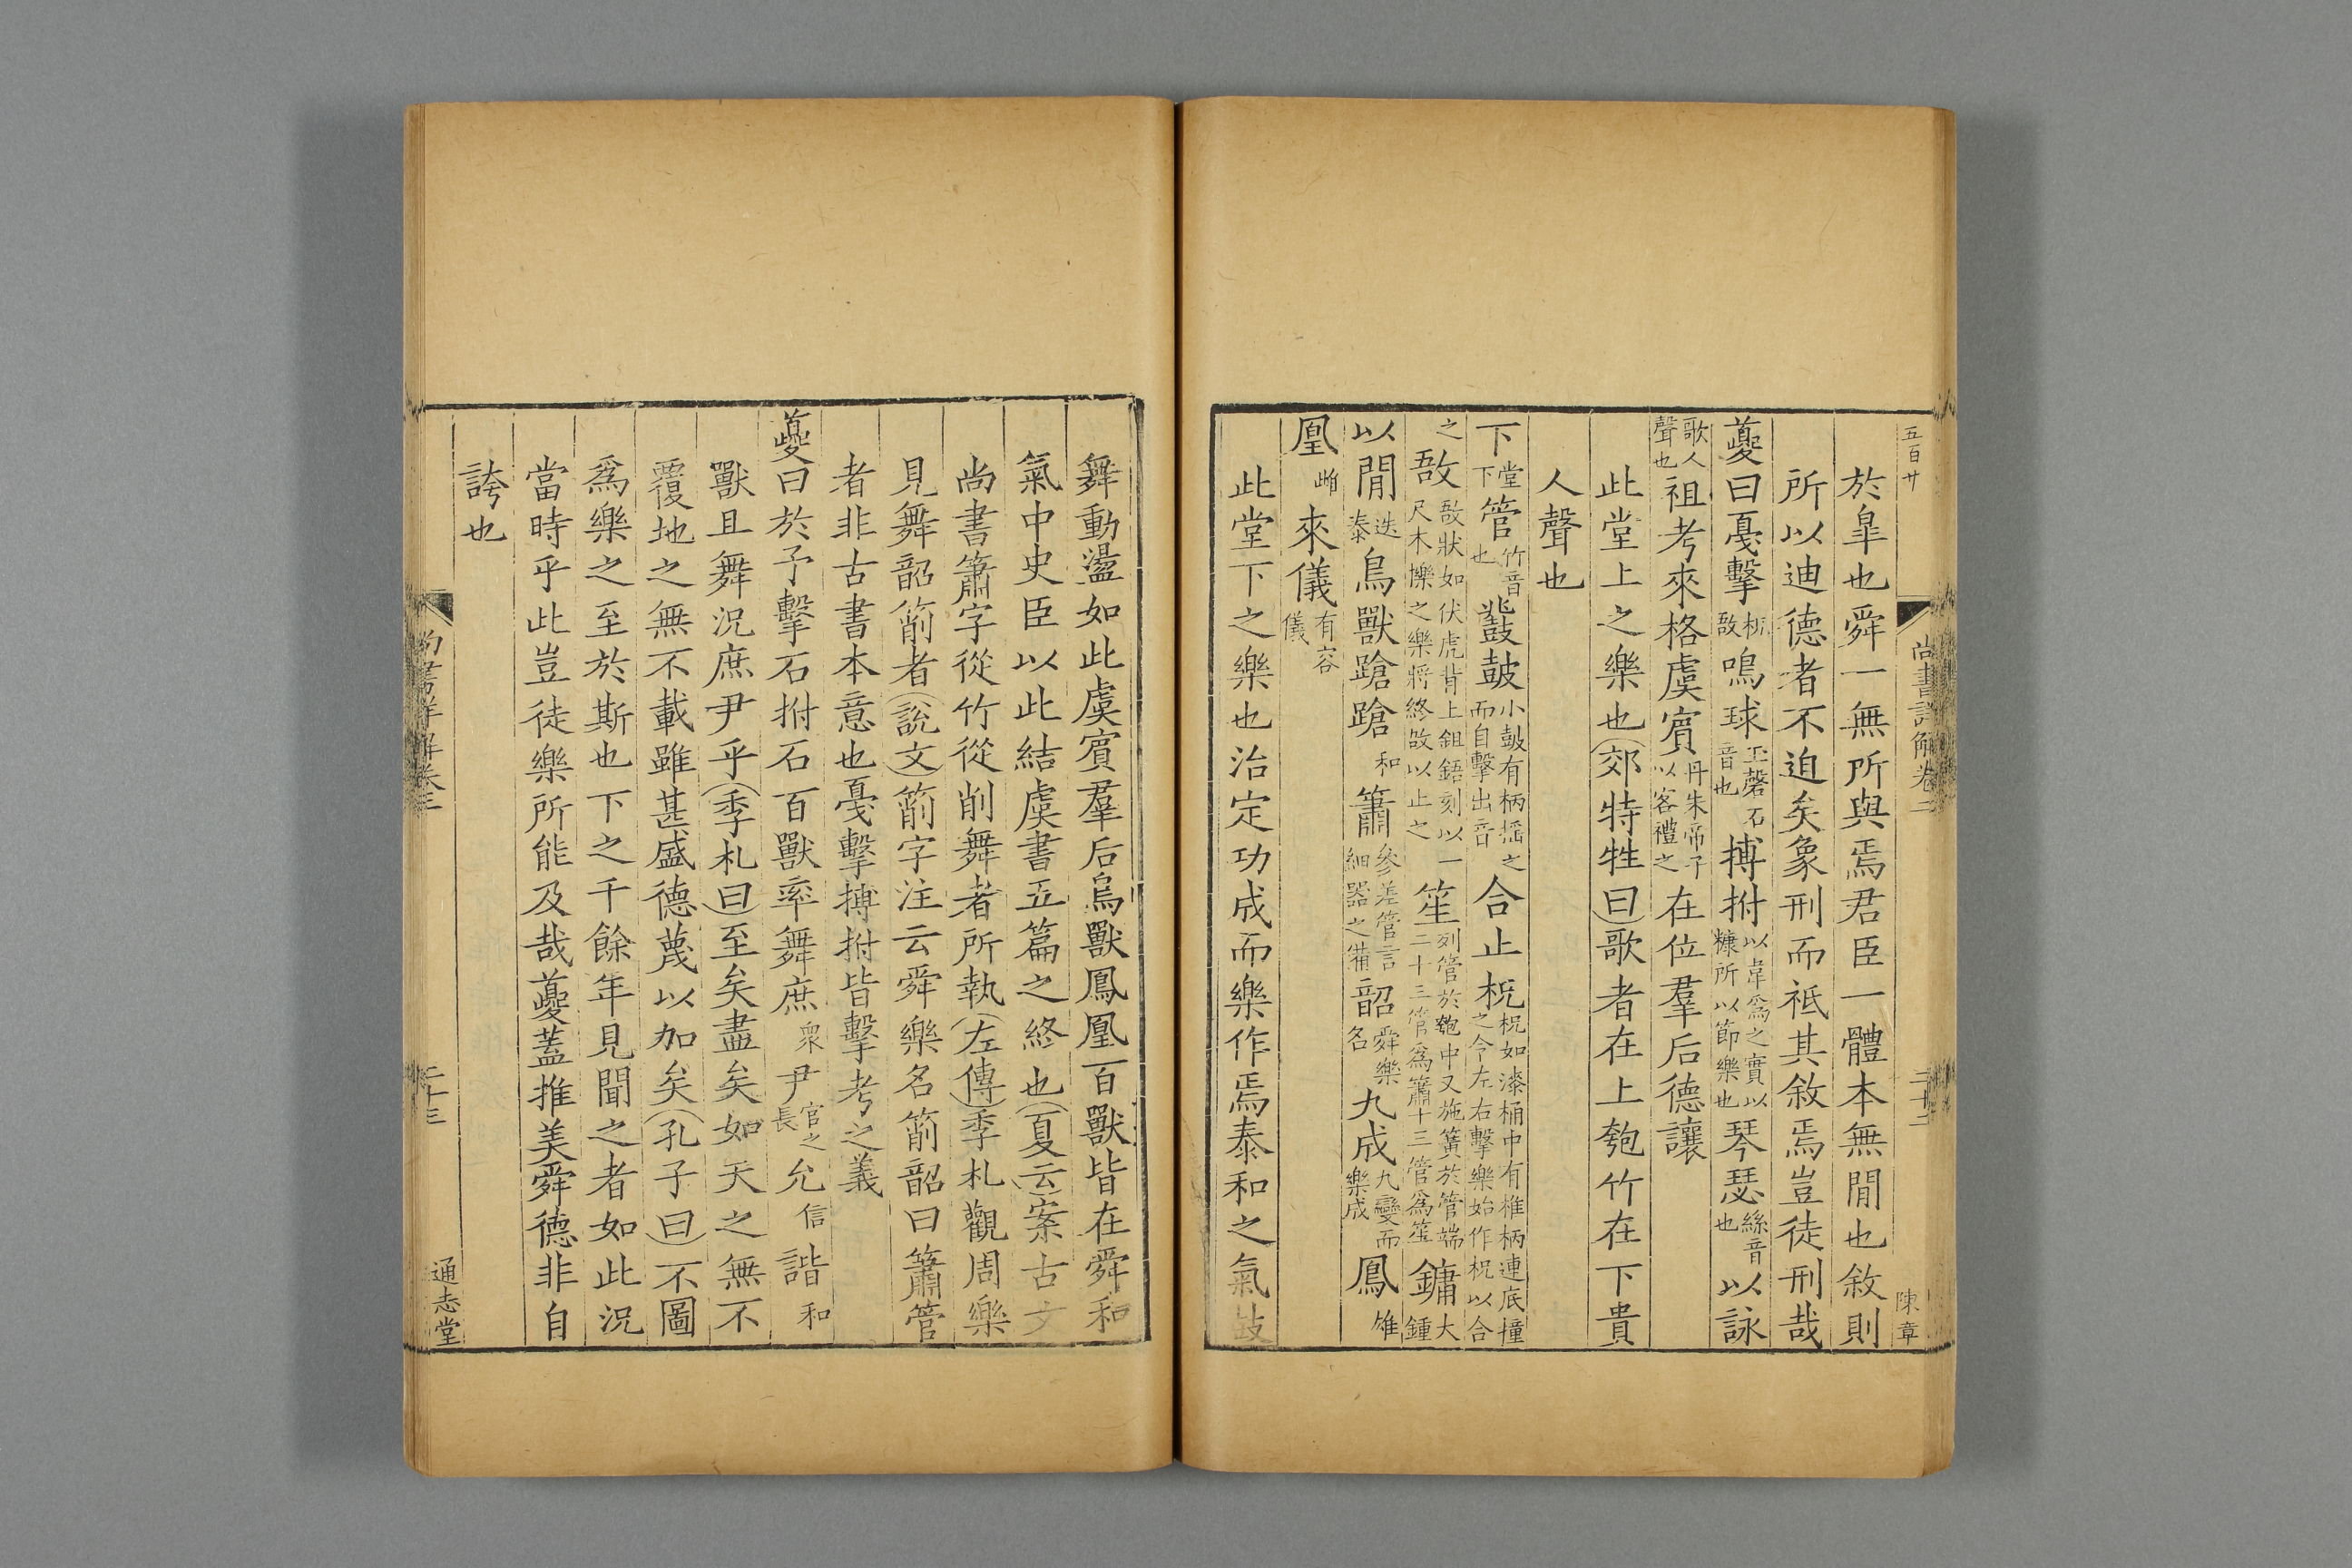 五百廿
尚書詳解卷二
陳章
於臯也舜一無所與焉君臣一體本無閒也敘則
所以迪德者不迫矣象刑而祗其敘焉豈徒刑哉
夔曰戛擊柷敔鳴球玉磬石音也搏拊以韋爲之實以糠所以節樂也琴瑟絲音也以詠
歌人聲也祖考來格虞賓丹朱帝子以客禮之在位羣后德讓
此堂上之樂也郊特牲曰歌者在上匏竹在下貴
人聲也
下堂下管竹音也鼗鼓小鼓有柄搖之而自擊出音合止柷柷如漆桶中有椎柄連底撞之令左右擊樂始作柷以合
之敔敔狀如伏虎背上鉏鋙刻以一尺木擽之樂將終敔以止之笙列管於匏中又施簧於管端二十三管爲簫十三管爲笙鏞大鍾
以閒迭奏鳥獸蹌蹌和簫參差管言細器之備韶舜樂名九成九變而樂成鳳雄
凰雌來儀有容儀
此堂下之樂也治定功成而樂作焉泰和之氣鼓
舞動盪如此虞賓羣后鳥獸鳳凰百獸皆在舜和
氣中史臣以此結虞書五篇之終也夏云案古文
尚書簫字從竹從削舞者所執左傳季札觀周樂
見舞韶箾者說文箾字注云舜樂名箾韶曰簫管
者非古書本意也戛擊搏拊皆擊考之義
夔曰於予擊石拊石百獸率舞庶衆尹官之長允信諧和
獸且舞況庶尹乎季札曰至矣盡矣如天之無不
覆地之無不載雖甚盛德蔑以加矣孔子曰不圖
爲樂之至於斯也下之千餘年見聞之者如此況
當時乎此豈徒樂所能及哉夔蓋推美舜德非自
誇也
尚書詳解卷三
二十三
通志堂